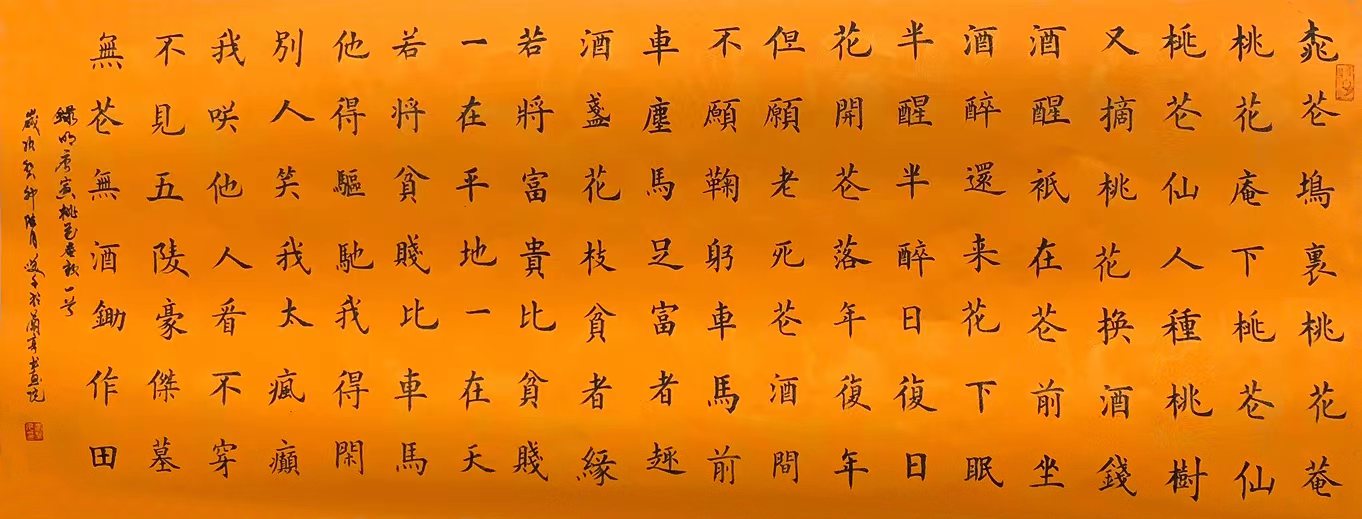 桃花塢裏桃花菴
桃花庵下桃花仙
桃花仙人種桃樹
又摘桃花換酒錢
酒醒衹在花前坐
酒醉還来花下眠
半醒半醉日復日
花開花落年復年
但願老死花酒間
不願鞠躬車馬前
車塵馬足富者趣
酒盞花枝貧者緣
若將富貴比貧賤
一在平地一在天
若將貧賤比車馬
他得驅馳我得閑
別人笑我太瘋癲
我咲他人看不穿
不見五陵豪傑墓
無花無酒鋤作田
錄明唐寅桃花庵歌一首
歲次癸卯月於蘭亭書畫院